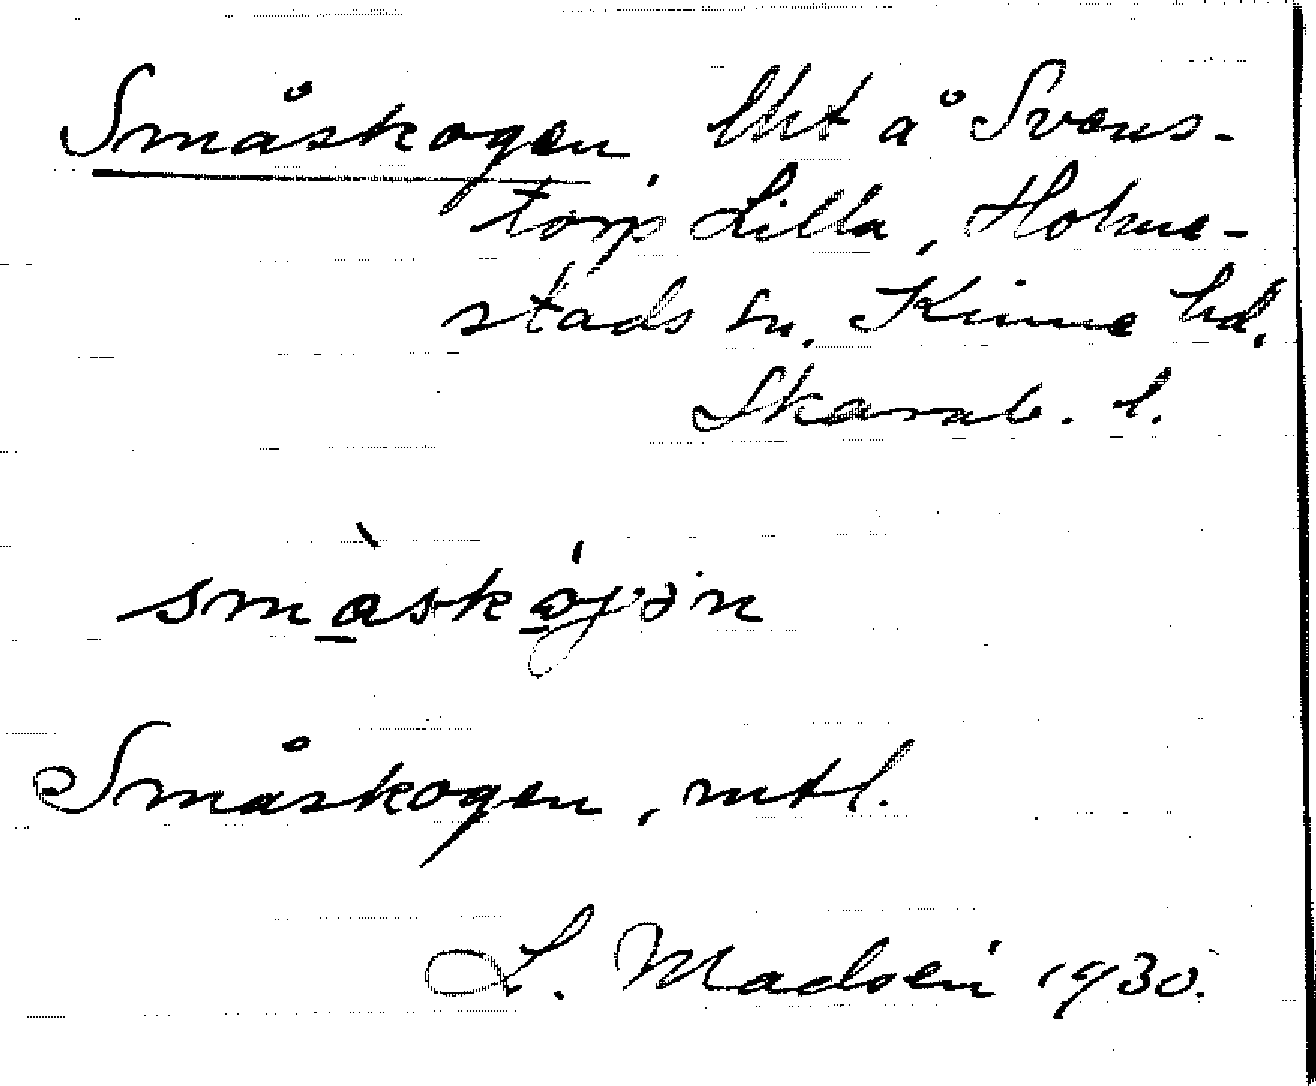 Småskogen, lht å Svens-
torp Lilla, Holme-
stads sn, Kinne hd.
Skarab. l.
Småskogen, mtl.
L. Madsén 1930.